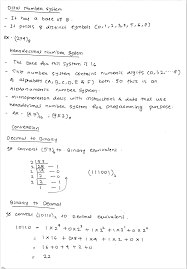 Octal Number System
- It has a base of 8
- It posses 8 distinct symbols (0,1,2,3,4,5,6,7)
ex - (
Hexadecimal Number System
- The base for this system is 16
- This number system contains numeric digits (0,1,2....9)
& alphabets (A,B,C,D,E & F) both. So this is an
Alphanumeric number system
- Microprocessor deals with instructions & data that use
hexadecimal number system for programming purpose
ex -
Conversion
Decimal to Binary
convert (57)₁₀ to Binary equivalent.
(111001)₂
Binary to Decimal
convert (10110)₂ to Decimal equivalent
10110 = 1×2⁴ + 0×2³ + 1×2² + 1×2¹ + 0×2⁰
= 1×16 + 0×8 + 1×4 + 1×2 + 0×1
= 16 + 0 + 4 + 2 + 0
= 22